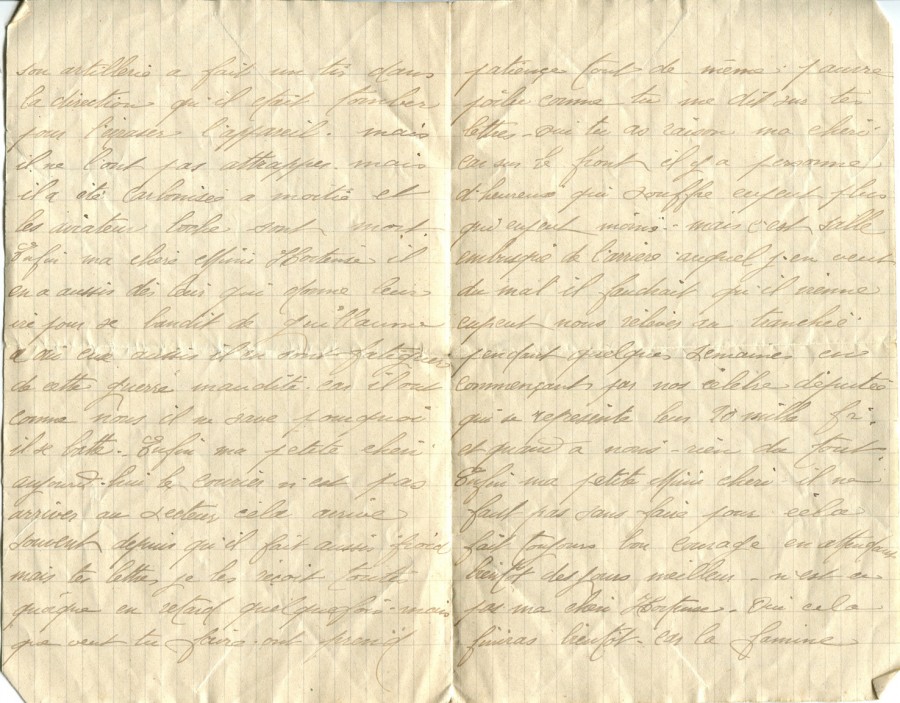 son artillerie a fait un tir dans
la direction qu'il était tomber
pour l'écraser l'appareil. mais
il ne l'ont pas attrapper. mais
il a été Carbonisés a moitié et
les aviateur boche sont mort.
Enfin ma chère Hortense il
en a aussis des leurs qui donne leur
vie pour se bandit de Guillaume
eux aussis il en sont fatiguér
de cette guerre maudite. car il ont
comme nous il ne save pourquoi
il se batte. Enfin ma petite chéri
aujourd-hui le courrier n'est pas
arriver au Secteur cela arrive
souvent depuis qu'il fait aussis froid
mais tes lettres je les reçoit toute
quoique en retard quelquefois - mais
que veut tu faire. ont prend
patience tout de même. pauvre
poilu comme tu me dit sur tes
lettres - oui tu as raison ma chéri
car sur le front il y a personne
d'heureux qui souffre enfent plus
qu'enfent moins - mais c'est salle
embusqué de l'arrière auquel j'en veut
du mal il faudrait qu'il vienne
enfent nous relever au tranchée
pendant quelques semaines en
commençant par nos célèbre députés
qui se représente leur 20 mille fr.
et quand a nous - rien du tout.
Enfin ma petite chéri il ne
faut pas sans faire pour cela
fait toujours bon courage en attendant
bientot des jours meilleur - n'est ce
pas ma chéri Hortense. Oui cela
finiras bientôt - car la famine